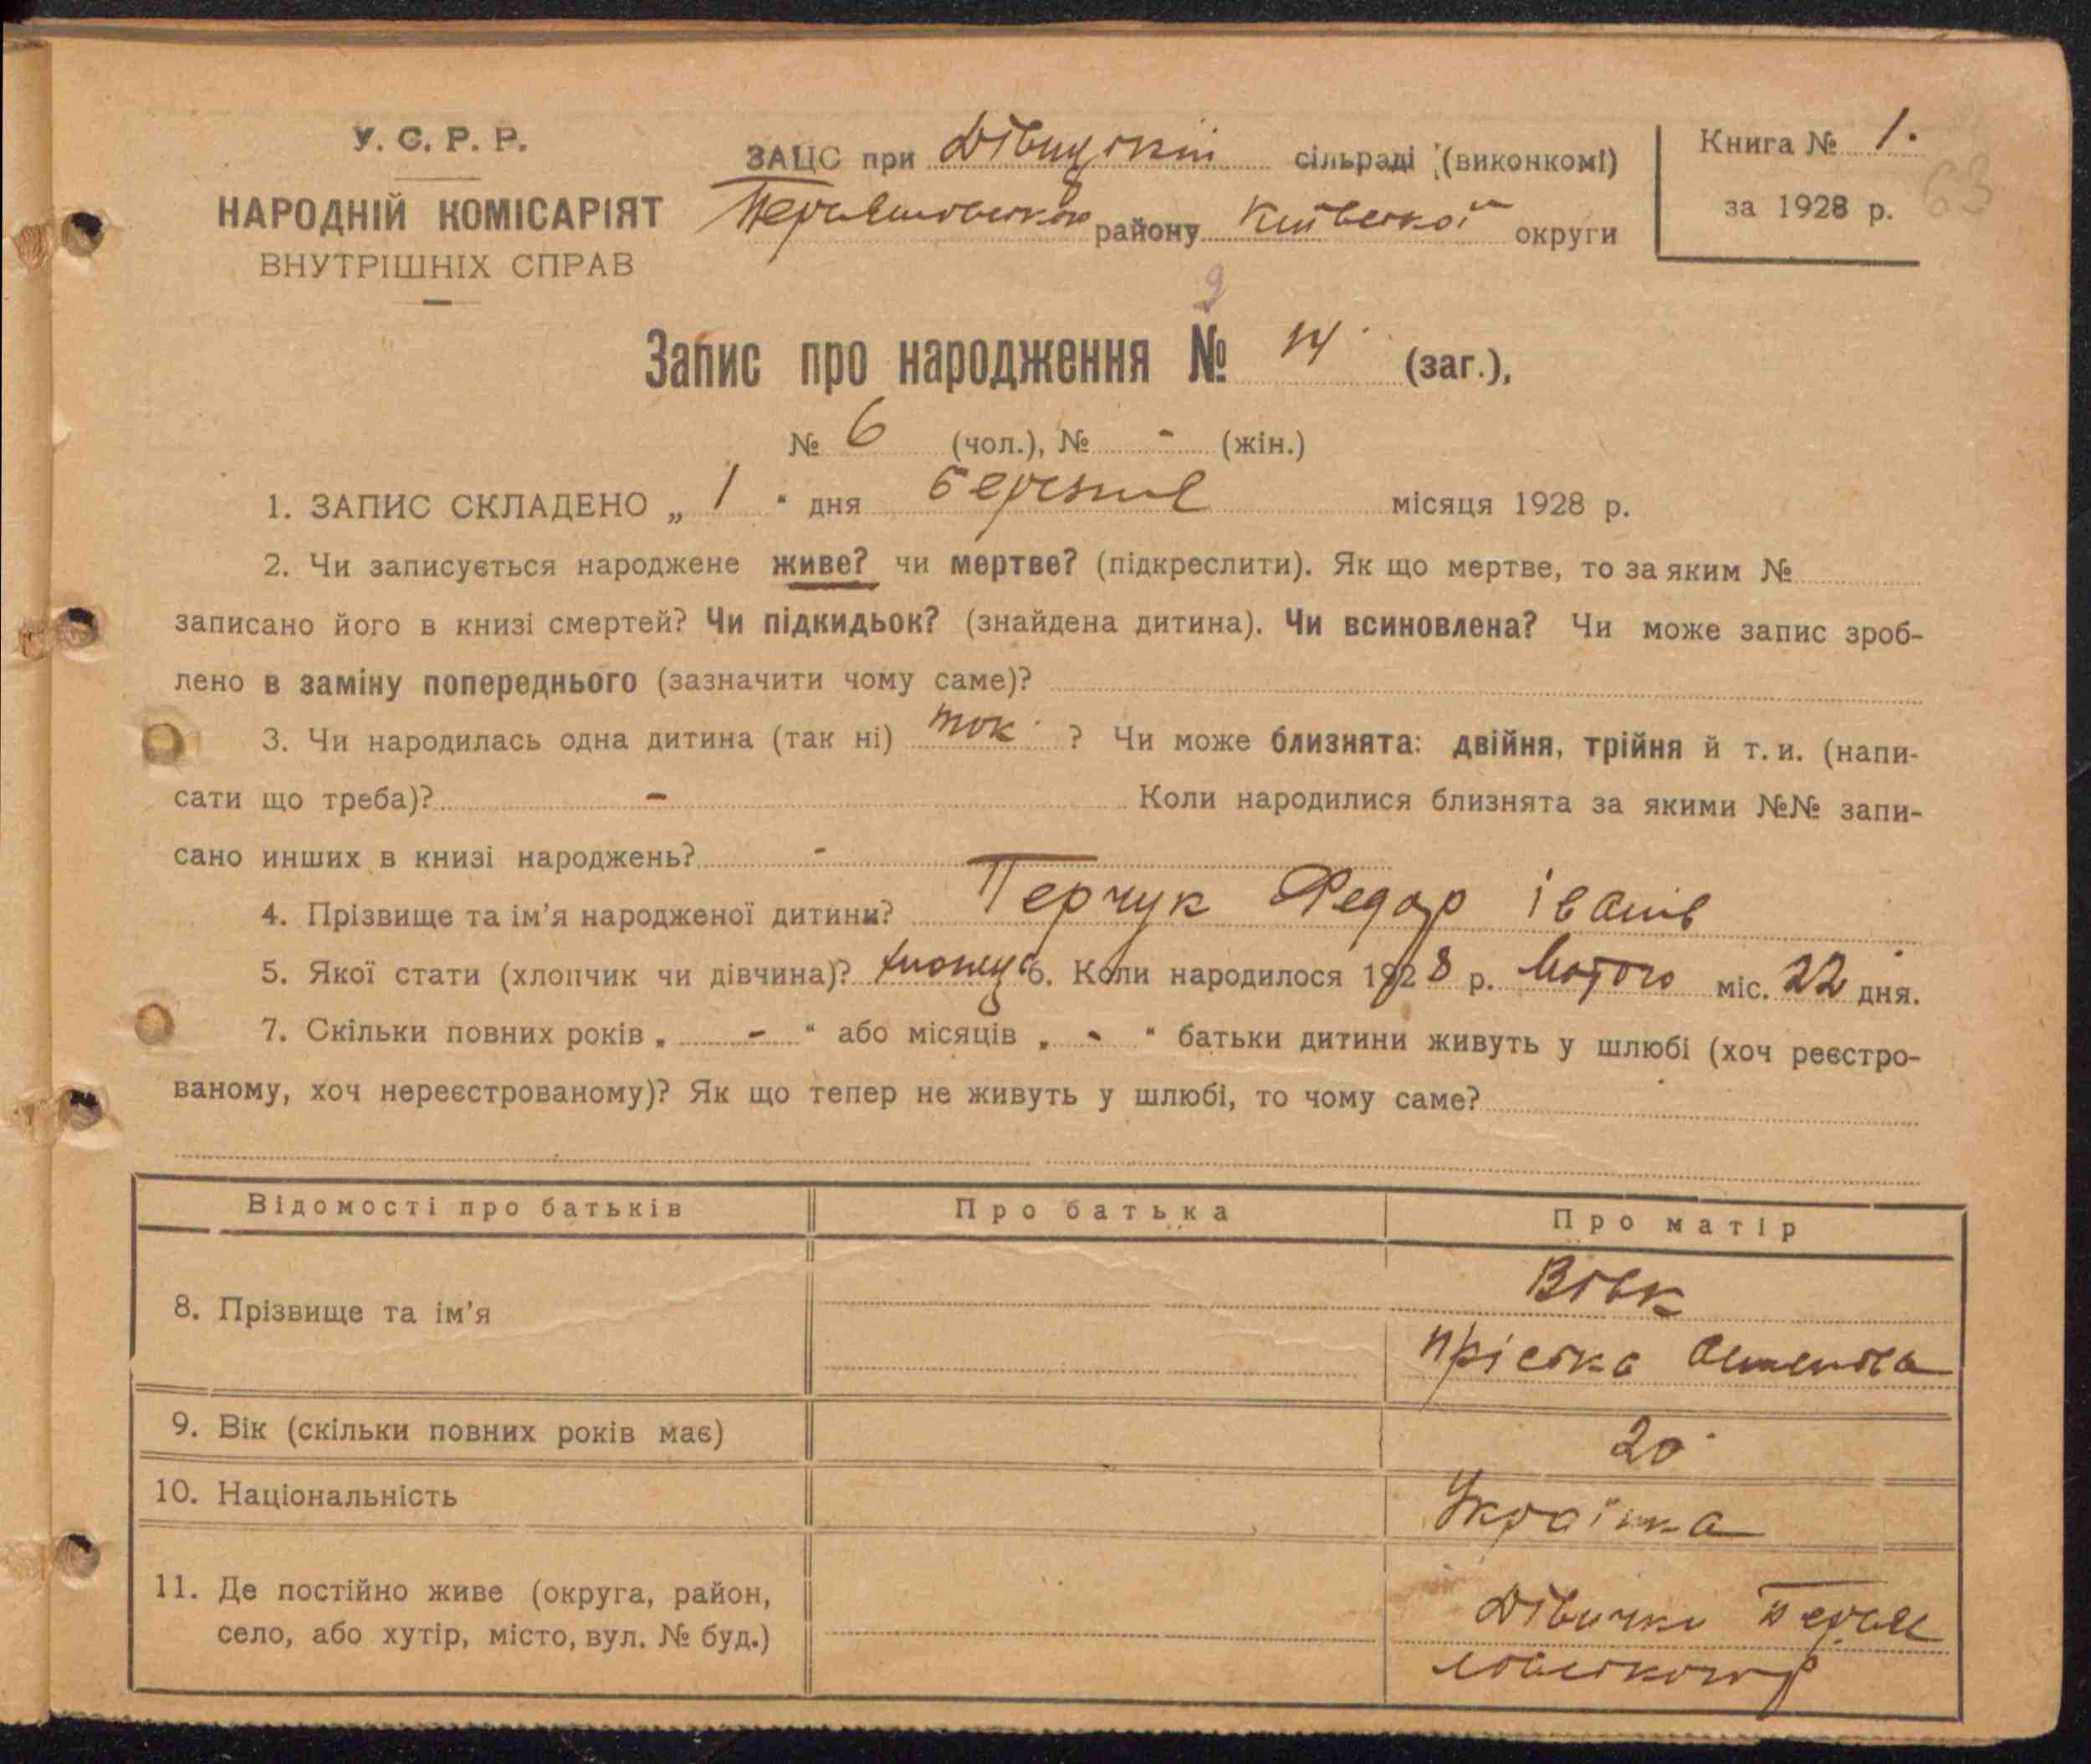 У. С. Р. Р.
НАРОДНІЙ КОМІСАРІЯТ
ВНУТРІШНІХ СПРАВ
ЗАЦС при Дівицькій сільраді (виконкомі)
району Київської округи
Книга № 1.
за 1928 р.
63
9
Запис про народження № 14 (заг.),
№ 6 (чол.), № - (жін.)
1. ЗАПИС СКЛАДЕНО „ 1 “ дня березня місяця 1928 р.
2. Чи записується народжене живе? чи мертве? (підкреслити). Як що мертве, то за яким №
записано його в книзі смертей? Чи підкидьок? (знайдена дитина). Чи всиновлена? Чи може запис зроб-
лено в заміну попереднього (зазначити чому саме)?
3. Чи народилась одна дитина (так ні) так ? Чи може близнята: двійня, трійня й т. и. (напи-
сати що треба)? - Коли народилися близнята за якими №№ запи-
сано инших в книзі народжень? -
4. Прізвище та ім’я народженої дитини? Перчук Федор Іванів
5. Якої стати (хлопчик чи дівчина)? хлопец 6. Коли народилося 1928 р. Лютого міс. 22 дня.
7. Скільки повних років „ - “ або місяців „ - “ батьки дитини живуть у шлюбі (хоч реєстро-
ваному, хоч нереєстрованому)? Як що тепер не живуть у шлюбі, то чому саме?
Відомості про батьків Про батька Про матір
8. Прізвище та ім’я Вовк
Пріська
9. Вік (скільки повних років має) 20
10. Національність Українка
11. Де постійно живе (округа, район,
село, або хутір, місто, вул. № буд.)
Дівички Переяс
лавського р